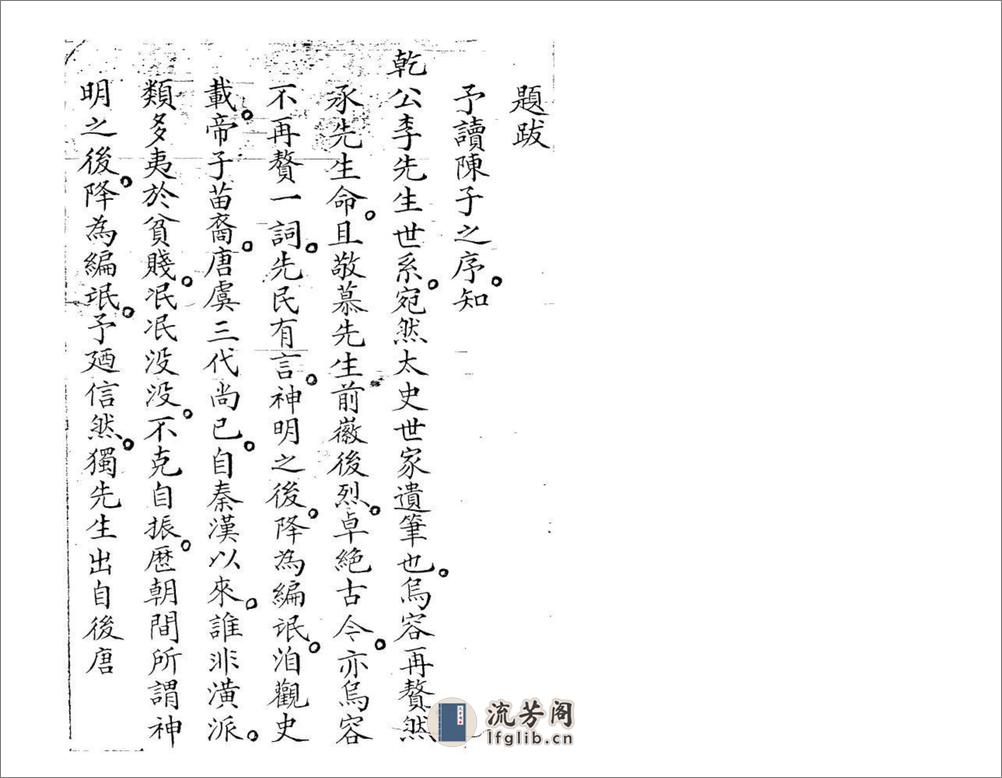 題跋
予讀陳子之序。知
乾公李先生世系。宛然太史世家遺筆也。烏容再贅。然
承先生命。且敬慕先生前徽後烈。卓絶古今。亦烏容
不再贅一詞。先民有言。神明之後。降為編氓。洎觀史
載。帝子苗裔。唐虞三代尚已。自秦漢以來。誰非潢派。
類多夷於貧賤。泯泯没没。不克自振。歷朝間所謂神
明之後。降為編氓。予廼信然。獨先生出自後唐
流芳阁
lfglib.cn